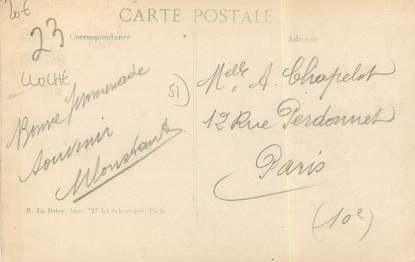 20€
CARTE POSTALE
23
Correspondance
Adresse
CLOCHE
Bonne Promenade
Souvenir
51)
Melle A. Chapelot
12 Rue Perdonnet
Paris
(10e)
E. Le Deley, imp. 127 bd Sébastopol, Paris